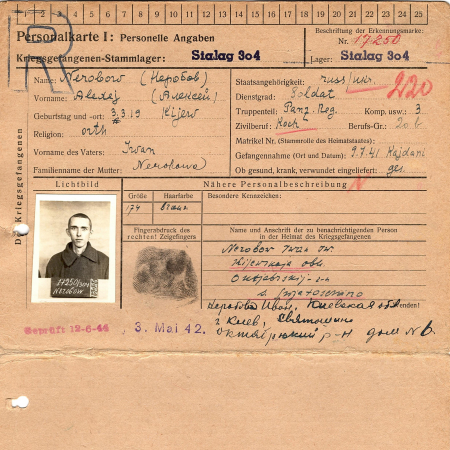 1 2 3 4 5 6 7 8 9 10 11 12 13 14 15 16 17 18 19 20 21 22 23 24 25
R
Personalkarte I: Personelle Angaben
Kriegsgefangenen-Stammlager: Stalag 304
Beschriftung der Erkennungsmarke:
Nr. 17250
Lager: Stalag 304
Des Kriegsgefangenen
Name: Nerobow (Неробов)
Vorname: Alexej (Алексей)
Geburtstag und -ort: 3.3.19 Kijew
Religion: orth
Vorname des Vaters: Iwan
Familienname der Mutter:
Staatsangehörigkeit: russ/ukr.
220
Dienstgrad: Soldat
Truppenteil: Panz. Reg. Komp. usw.: 3
Zivilberuf: Koch Berufs-Gr.: 20 b
Matrikel Nr. (Stammrolle des Heimatstaates):
Gefangennahme (Ort und Datum): 9.7.41
Ob gesund, krank, verwundet eingeliefert: ges.
Lichtbild
Nähere Personalbeschreibung
Größe
Haarfarbe
Besondere Kennzeichen:
174
17250
NEROBOW
Fingerabdruck des
rechten! Zeigefingers
Name und Anschrift der zu benachrichtigenden Person
in der Heimat des Kriegsgefangenen
Nerobow Iwan
Kijewskaja obl.
Неробов Иван, Киевская обл
г Киев, Святошин
Октябрский р-н дом № 6.
Geprüft 12-6-44
3. Mai 42.